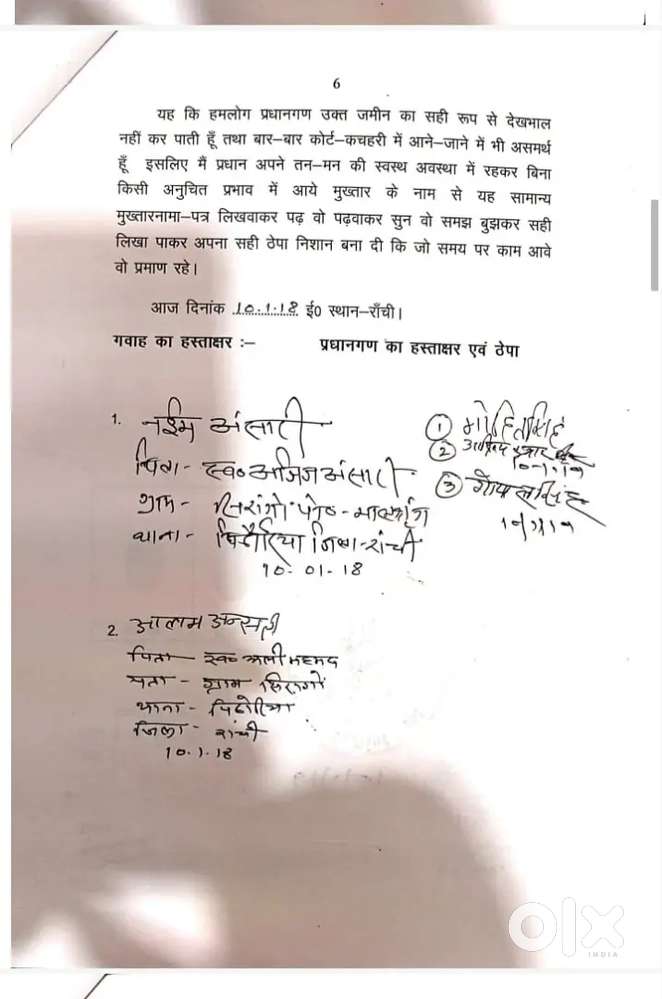 6
यह कि हमलोग प्रधानगण उक्त जमीन का सही रूप से देखभाल
नहीं कर पाती हूँ तथा बार–बार कोर्ट–कचहरी में आने–जाने में भी असमर्थ
हूँ इसलिए मैं प्रधान अपने तन–मन की स्वस्थ अवस्था में रहकर बिना
किसी अनुचित प्रभाव में आये मुख्तार के नाम से यह सामान्य
मुख्तारनामा–पत्र लिखवाकर पढ़ वो पढ़वाकर सुन वो समझ बुझकर सही
लिखा पाकर अपना सही ठेपा निशान बना दी कि जो समय पर काम आवे
वो प्रमाण रहे।
आज दिनांक 10.1.18 ई0 स्थान–राँची।
गवाह का हस्ताक्षर :– प्रधानगण का हस्ताक्षर एवं ठेपा
1. नईम अंसारी
पिता- स्व० अजिज अंसारी
ग्राम-
थाना- जिला-रांची
10-01-18
① मोहित सिंह
②
③ गोपाल सिंह
2. आलम अन्सारी
पिता- स्व० अली महमद
पता- ग्राम
थाना- पिठोरिया
जिला- रांची
10.1.18
olx
INDIA